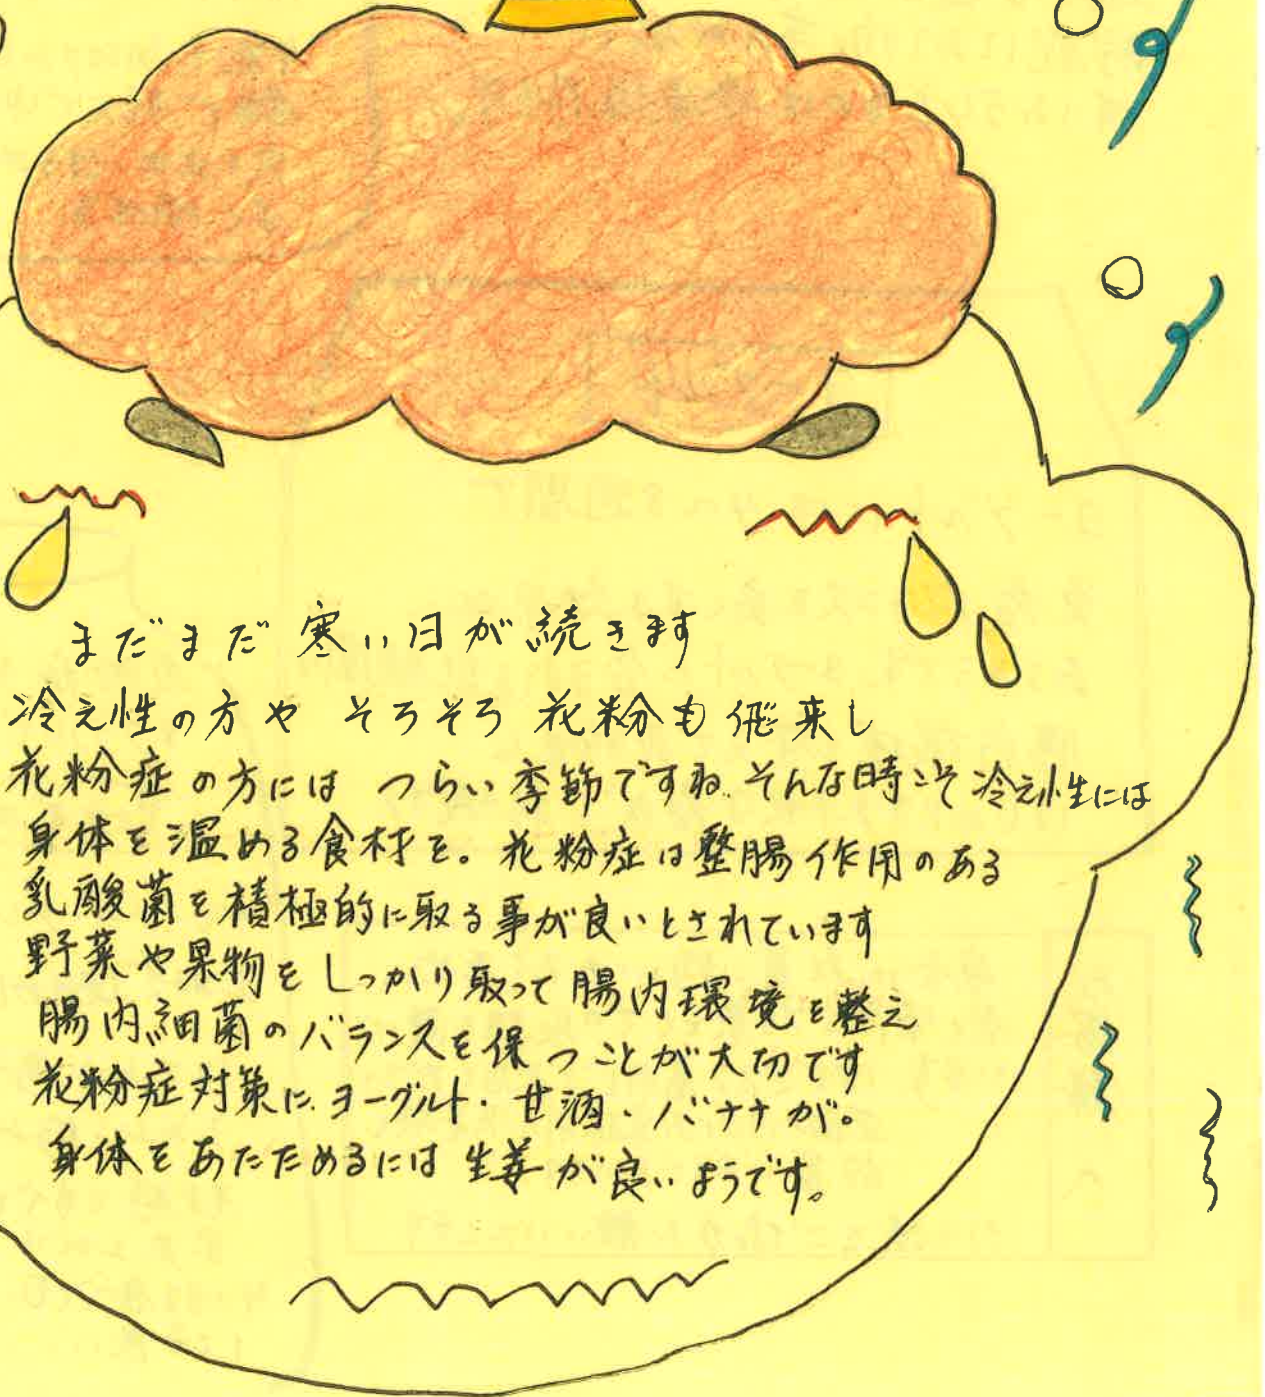 まだまだ寒い日が続きます
冷え性の方や そろそろ 花粉も飛来し
花粉症の方には つらい季節ですね。そんな時こそ冷え性には
身体を温める食材を。花粉症は整腸作用のある
乳酸菌を積極的に取る事が良いとされています
野菜や果物をしっかり取って腸内環境を整え
腸内細菌のバランスを保つことが大切です
花粉症対策に、ヨーグルト・甘酒・バナナが。
身体をあたためるには生姜が良いようです。